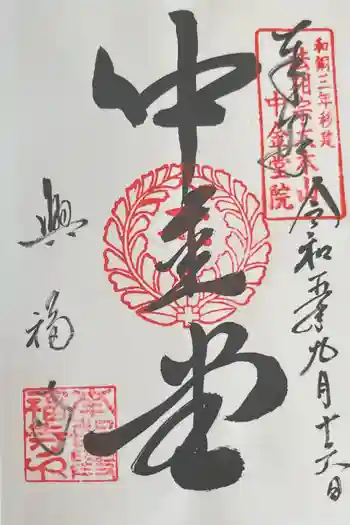 奉拝
和銅三年移建
法相宗大本山
中金堂院
令和五年九月十六日
中金堂
興福寺